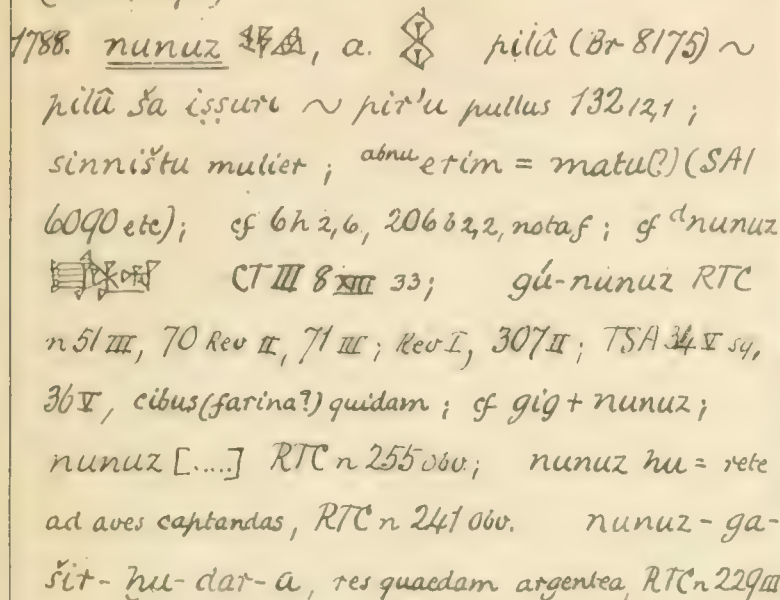 1788. nunuz, a. pilû (Br 8175) ~
pilû ša iṣṣuri ~ pir'u pullus 132 12,1 ;
sinništu mulier ; abnu erim = matu(?) (SAI
6090 etc) ; cf 6h 2,6, 206b 2,2, nota f ; cf d nunuz
CT III 8 XIII 33 ; gú-nunuz RTC
n 51 III, 70 Rev II, 71 III ; Rev I, 307 II ; TSA 34 V sq,
36 V, cibus (farina?) quidam ; cf gig + nunuz ;
nunuz [.....] RTC n 255 obv. ; nunuz hu = rete
ad aves captandas, RTC n 241 Obv. nunuz-ga-
šir-ḫu-dar-a, res quaedam argentea, RTC n 229 III